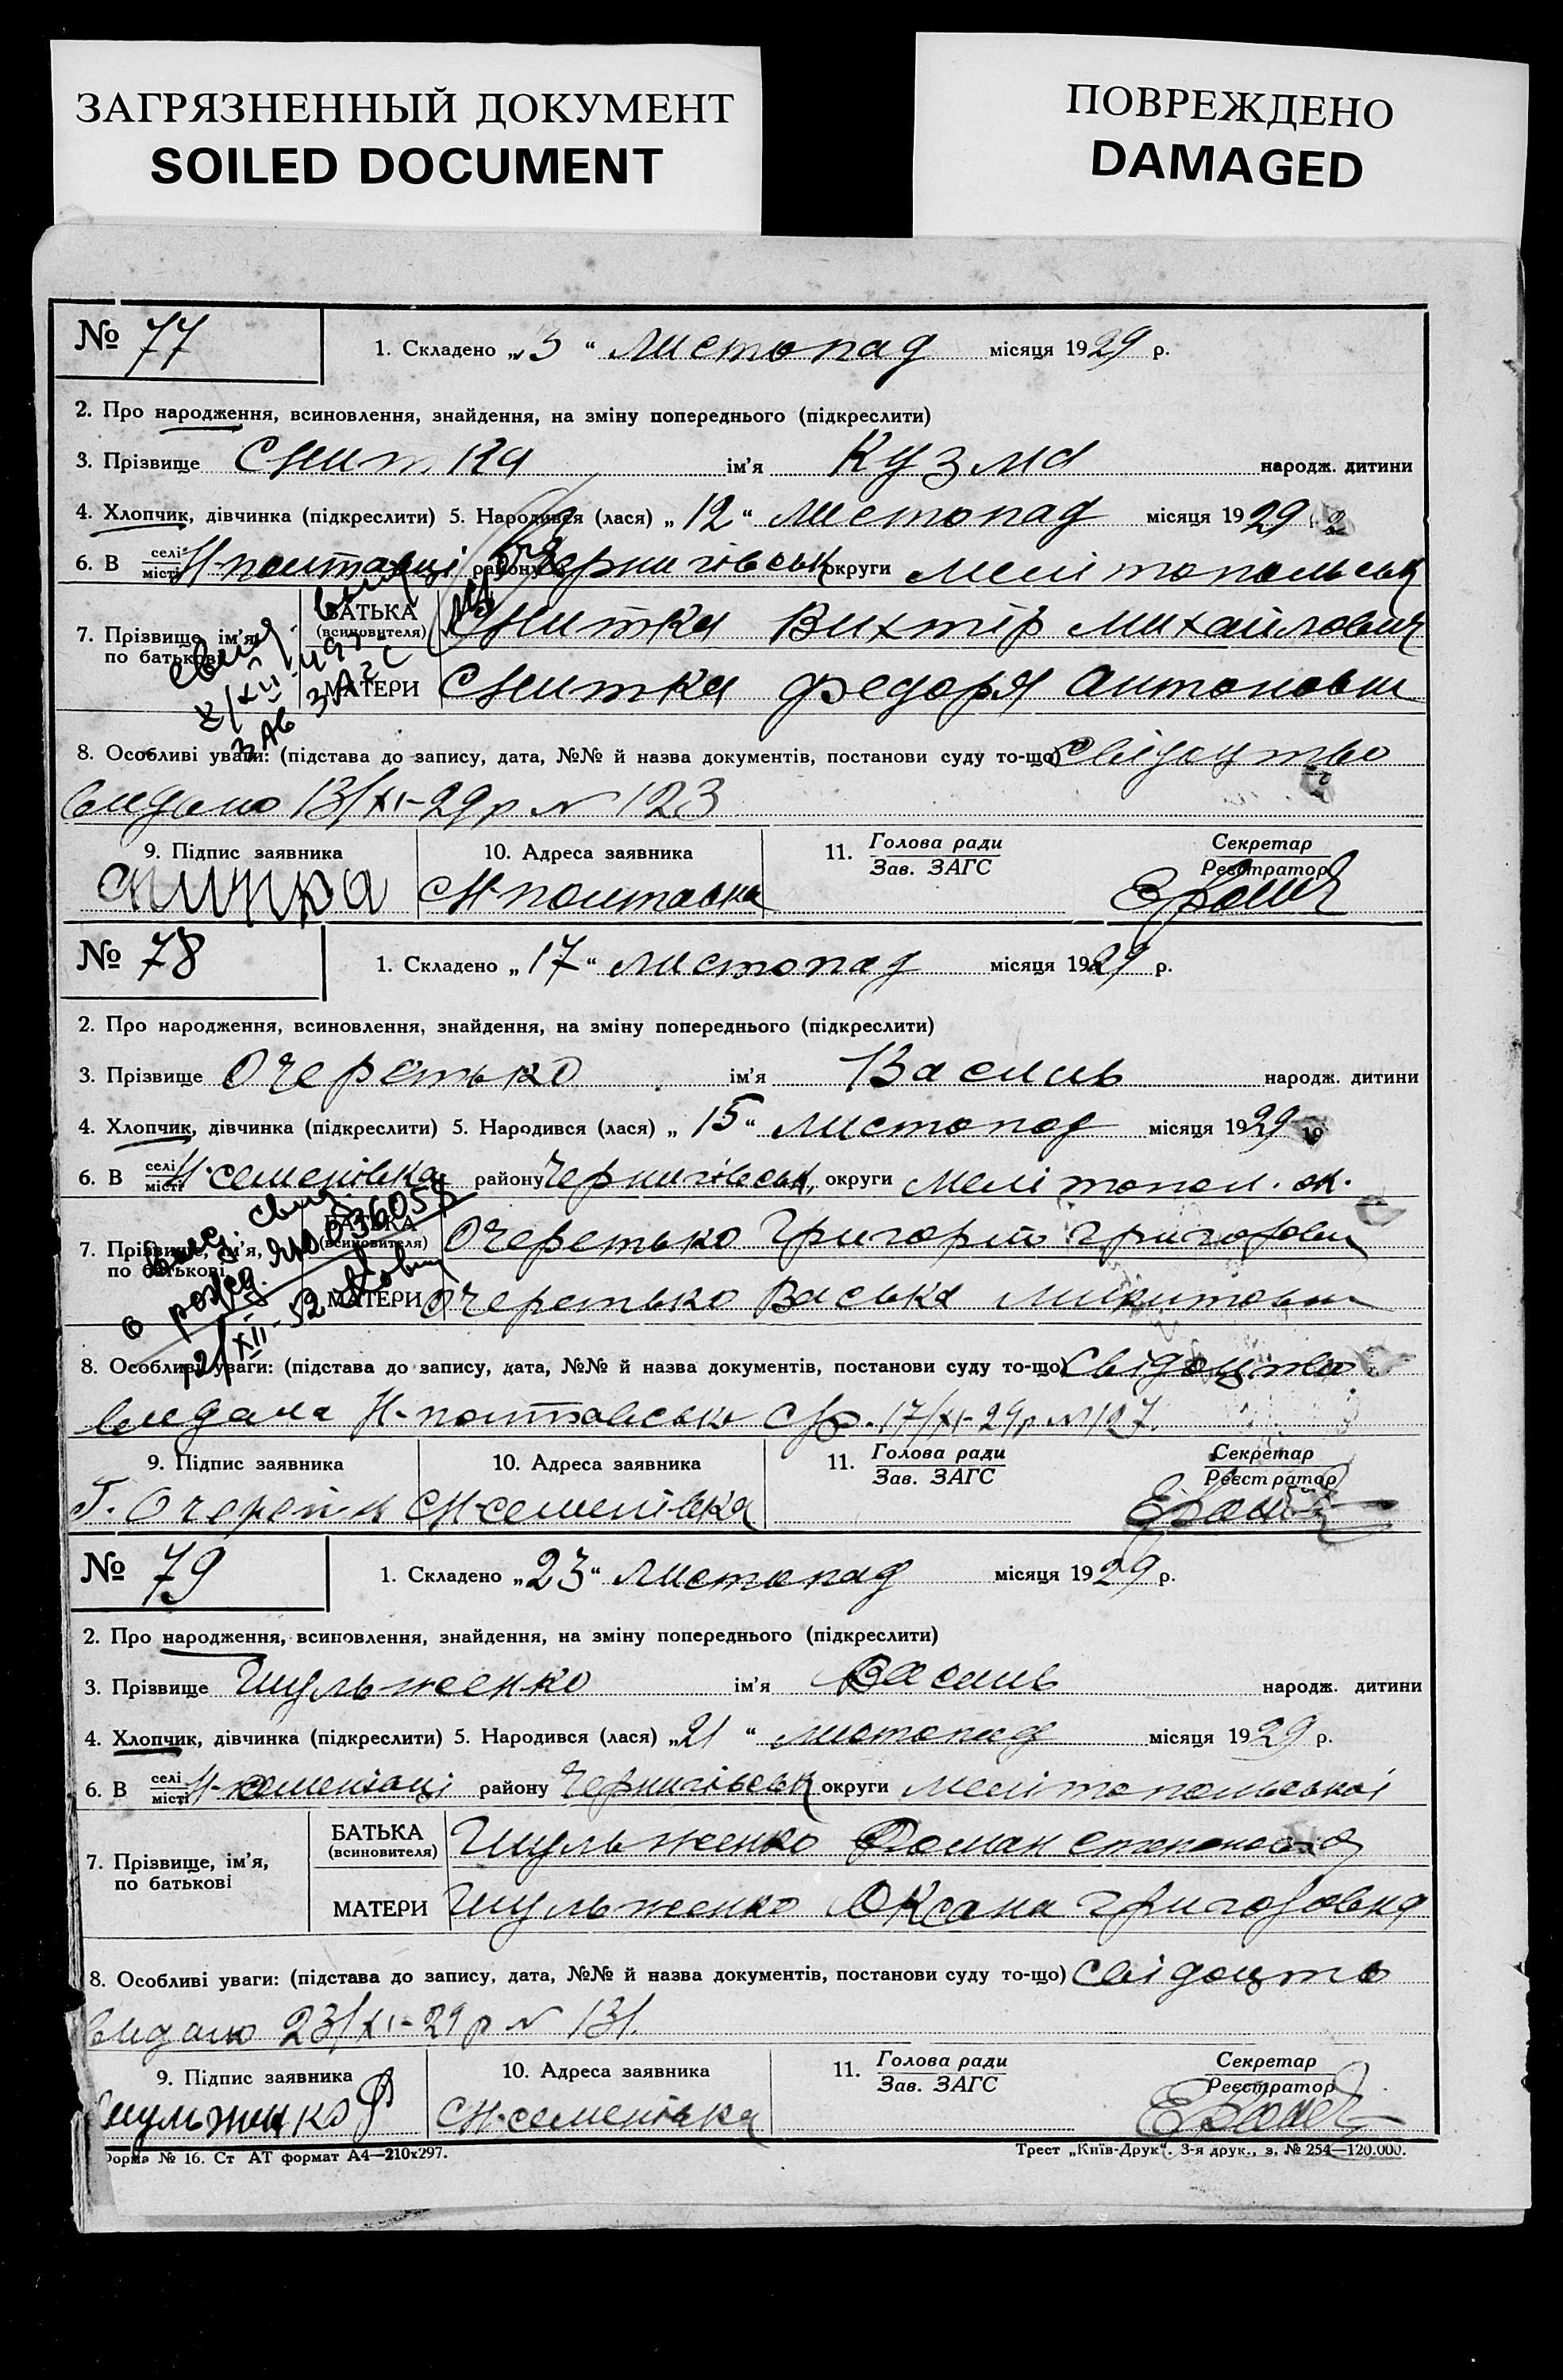 ЗАГРЯЗНЕННЫЙ ДОКУМЕНТ
SOILED DOCUMENT
ПОВРЕЖДЕНО
DAMAGED
№ 77
1. Складено „ “ листопад місяця 1929 р.
2. Про народження, всиновлення, знайдення, на зміну попереднього (підкреслити)
3. Прізвище Снитка ім'я Кузма народж. дитини
4. Хлопчик, дівчинка (підкреслити) 5. Народився (лася) „ 12 “ листопад місяця 1929 р
6. В селі місті Н-полтавці району Чернигівськ округи Мелітопольськ
7. Прізвище, ім'я, по батькові
БАТЬКА (всиновителя) Снитка Вихтір Михайлович
МАТЕРИ Снитка Федора Антоновна
8. Особливі уваги: (підстава до запису, дата, №№ й назва документів, постанови суду то-що) Свідоцтво
видано 13/XI-29р № 123
9. Підпис заявника
10. Адреса заявника
11. Голова ради
Зав. ЗАГС
Секретар
Реєстратор
Снитка С Н-полтавка
№ 78
1. Складено „ 17 “ листопад місяця 1929 р.
2. Про народження, всиновлення, знайдення, на зміну попереднього (підкреслити)
3. Прізвище Очеретько ім'я Василь народж. дитини
4. Хлопчик, дівчинка (підкреслити) 5. Народився (лася) „ 15 “ листопад місяця 1929 р
6. В селі місті Н-семенівка району Чернигівськ, округи Мелітопол. ок.
7. Прізвище, ім'я, по батькові
БАТЬКА (всиновителя) Очеретько Григорій Григорович
МАТЕРИ Очеретько Васька Микитовна
8. Особливі уваги: (підстава до запису, дата, №№ й назва документів, постанови суду то-що) Свідоцтво
видана Н-полтавсько 17/XI-29р № 127
9. Підпис заявника
10. Адреса заявника
11. Голова ради
Зав. ЗАГС
Секретар
Реєстратор
Г. С Н-семенівка
№ 79
1. Складено „ 23 “ листопад місяця 1929 р.
2. Про народження, всиновлення, знайдення, на зміну попереднього (підкреслити)
3. Прізвище Шульженко ім'я Василь народж. дитини
4. Хлопчик, дівчинка (підкреслити) 5. Народився (лася) „ 21 “ листопад місяця 1929 р.
6. В селі місті Н-семенівці району Чернигівськ округи Мелітопольської
7. Прізвище, ім'я, по батькові
БАТЬКА (всиновителя) Шульженко Роман Степанович
МАТЕРИ Шульженко Оксана Григоровна
8. Особливі уваги: (підстава до запису, дата, №№ й назва документів, постанови суду то-що) Свідоцтв
видано 23/XI-29 р № 131.
9. Підпис заявника
10. Адреса заявника
11. Голова ради
Зав. ЗАГС
Секретар
Реєстратор
Шульженко Р С Н-семенівка
Форма № 16. Ст АТ формат А4—210х297.
Трест „Київ-Друк“. 3-я друк., з. № 254—120.000.